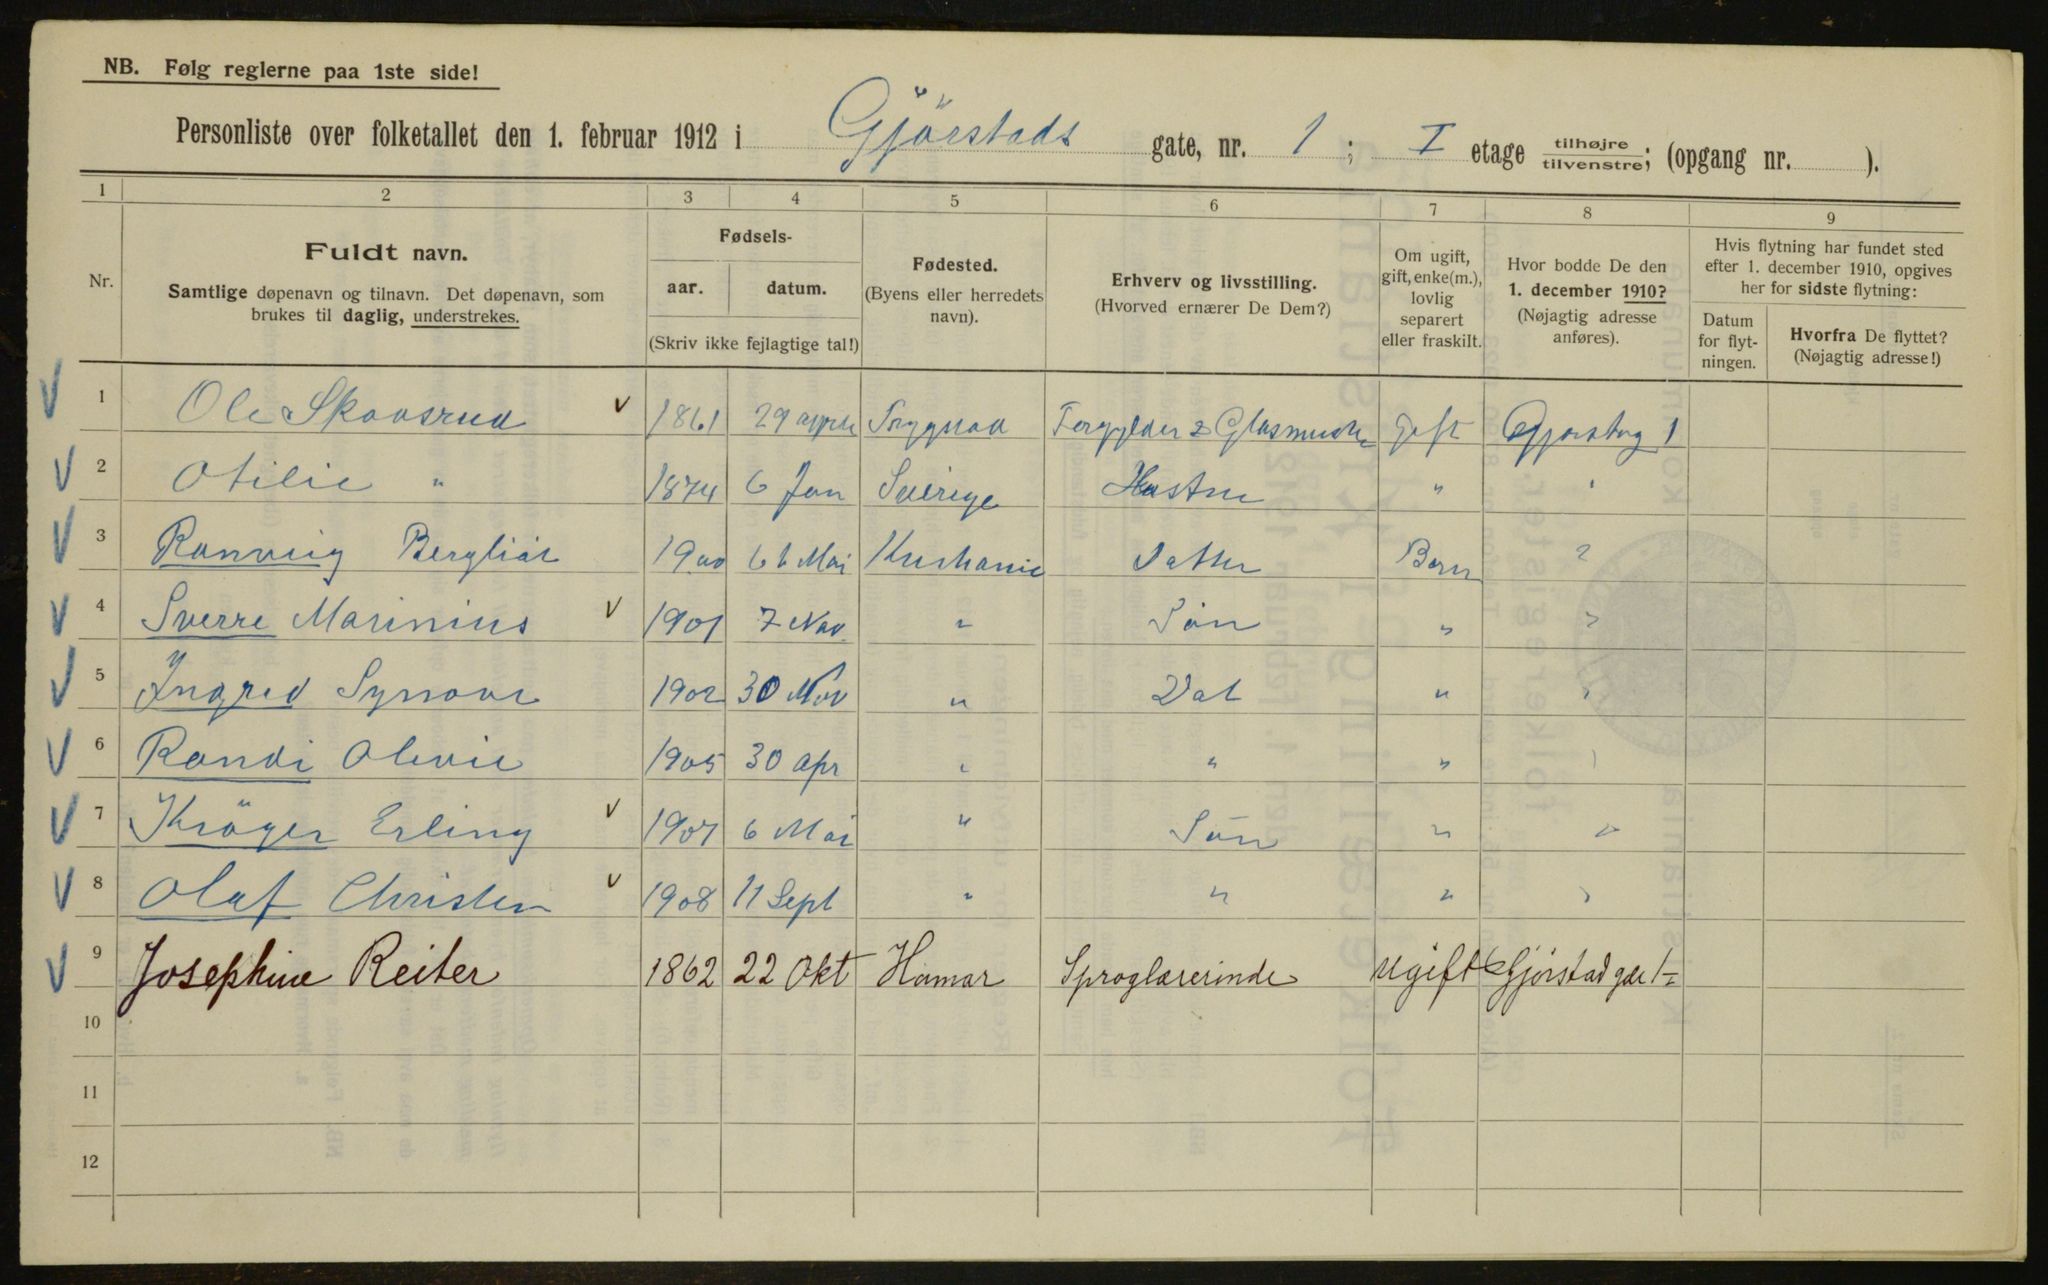 NB. Følg reglerne paa 1ste side!
Personliste over folketallet den 1. februar 1912 i Gjörstads gate, nr. 1; I etage tilhøjre tilvenstre; (opgang nr. ).
1 2 3 4 5 6 7 8 9
Nr.
Fuldt navn.
Samtlige døpenavn og tilnavn. Det døpenavn, som
brukes til daglig, understrekes.
Fødsels-
aar. datum.
(Skriv ikke fejlagtige tal!)
Fødested.
(Byens eller herredets
navn).
Erhverv og livsstilling.
(Hvorved ernærer De Dem?)
Om ugift,
gift, enke(m.),
lovlig
separert
eller fraskilt.
Hvor bodde De den
1. december 1910?
(Nøjagtig adresse
anføres).
Hvis flytning har fundet sted
efter 1. december 1910, opgives
her for sidste flytning:
Datum
for flyt-
ningen.
Hvorfra De flyttet?
(Nøjagtig adresse!)
1 Ole Skovsrud 1861 29 Forgylder & Gift 1
2 Otilie " 1874 6 Jan Sverige " "
3 Ranveig Bergliót 1900 Mai Datter Barn "
4 Sverre Marinius 1901 7 Nov " Sön " "
5 Ingrid Synove 1902 30 Nov " Dat " "
6 Randi Olevie 1905 30 apr " " " "
7 Kröger Erling 1907 6 Mai " Sön " "
8 Olaf Christen 1908 11 Sept " " " "
9 Josephine Reiter 1862 22 Okt Hamar Sproglærerinde ugift Gjörstad gae 1=
10
11
12